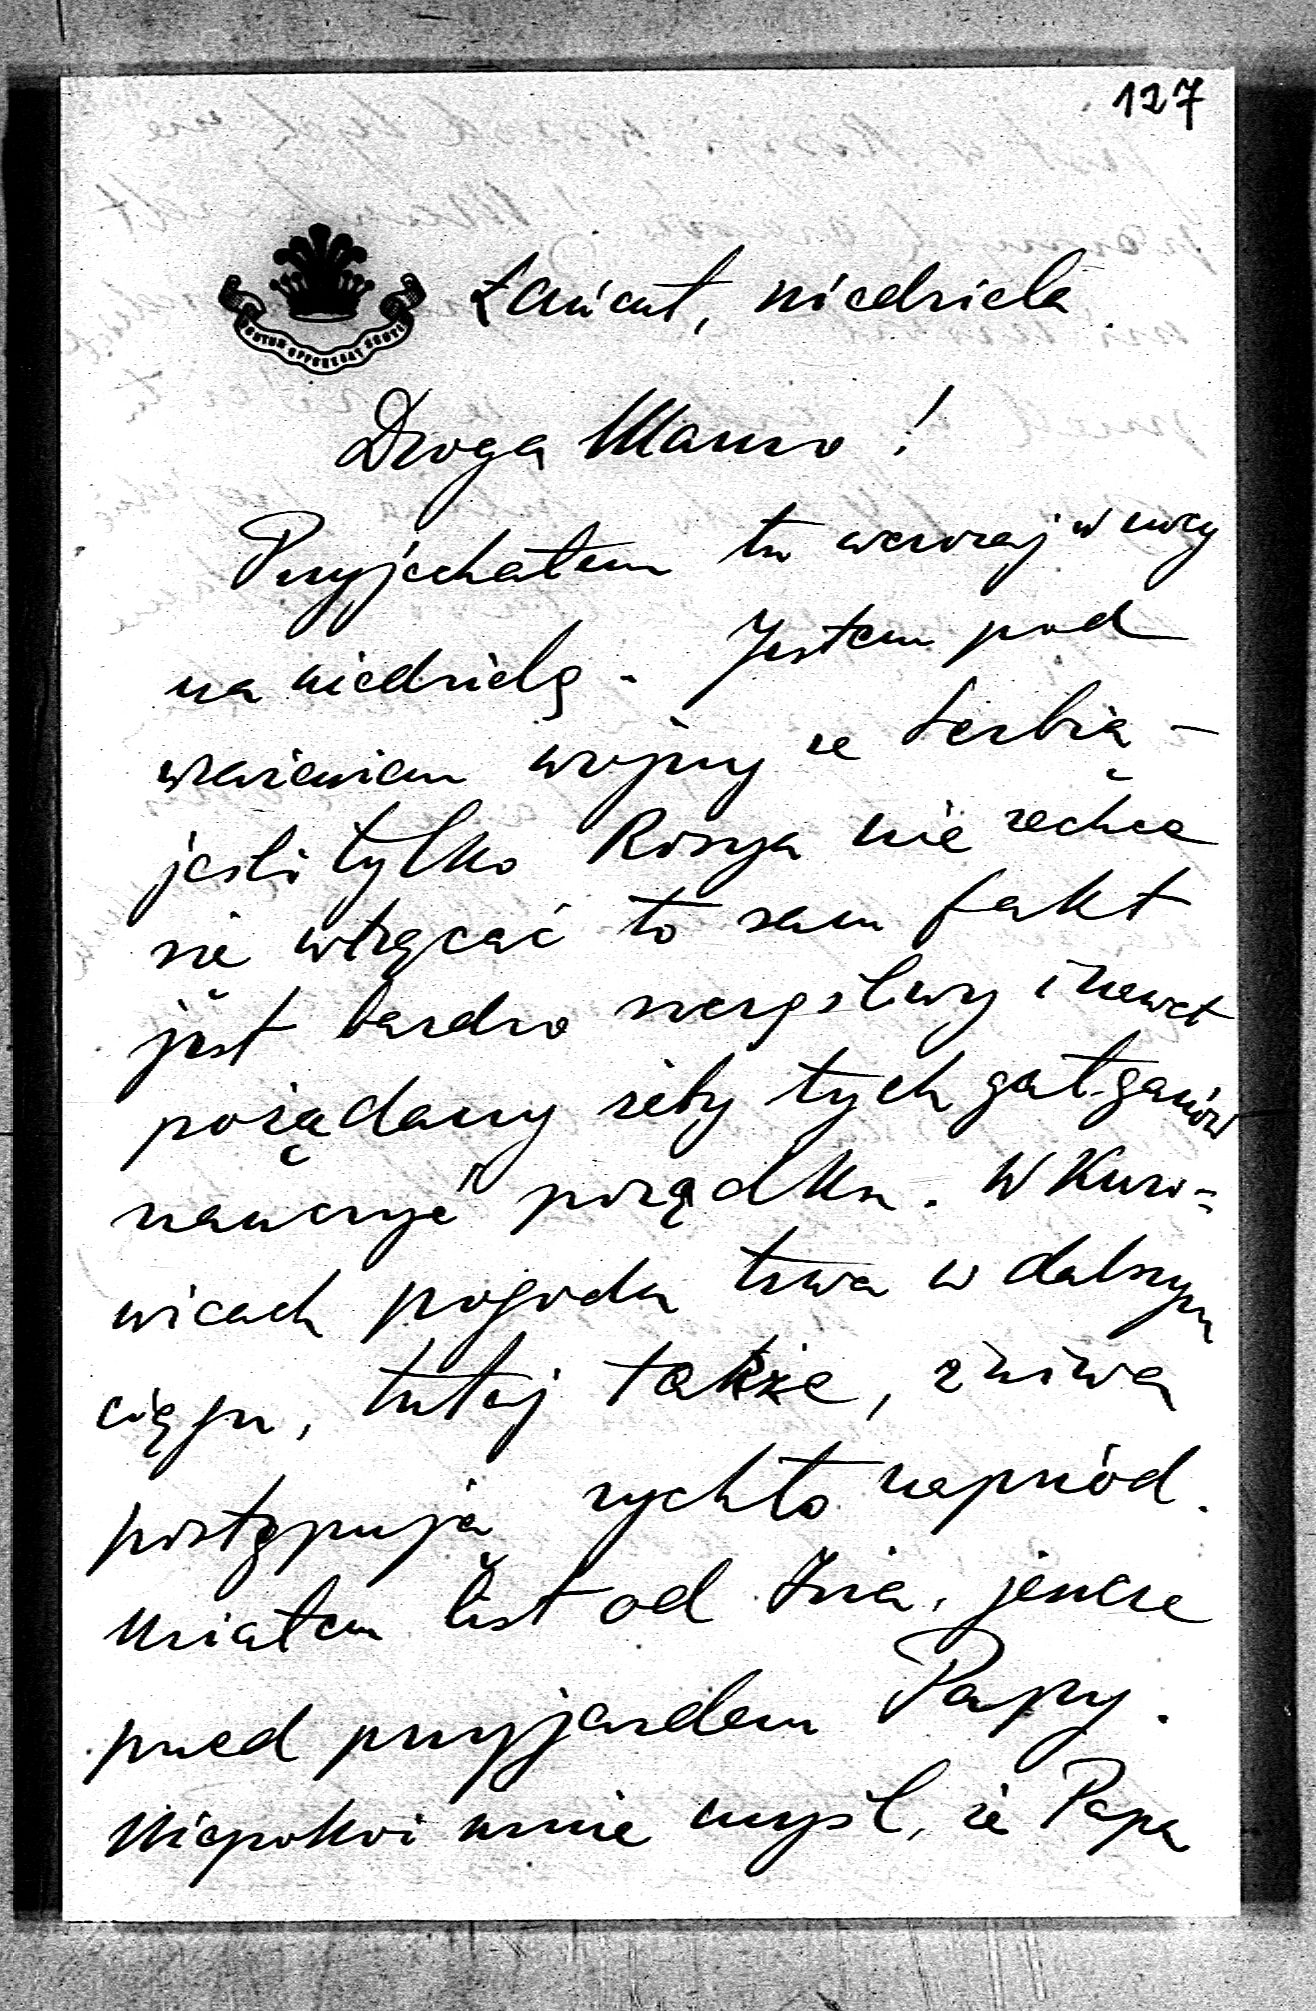 127
SCUTUM OPPONEBAT SCUTIS
Łańcut, niedziela
Droga Mamo!
Przyjechałem tu wczoraj w nocy
na niedzielę. Jestem pod
wrażeniem wojny ze Serbią –
jeśli tylko Rosya nie zechce
się wtrącać to sam fakt
jest bardzo szczęśliwy i nawet
pożądany żeby tych gałganów
nauczyć porządku. W Kuro=
wicach pogoda trwa w dalszym
ciągu, tutaj także, żniwa
postępują rychło naprzód.
Miałem list od Zia, jeszcze
przed przyjazdem Papy.
Niepokoi mnie myśl, że Papa